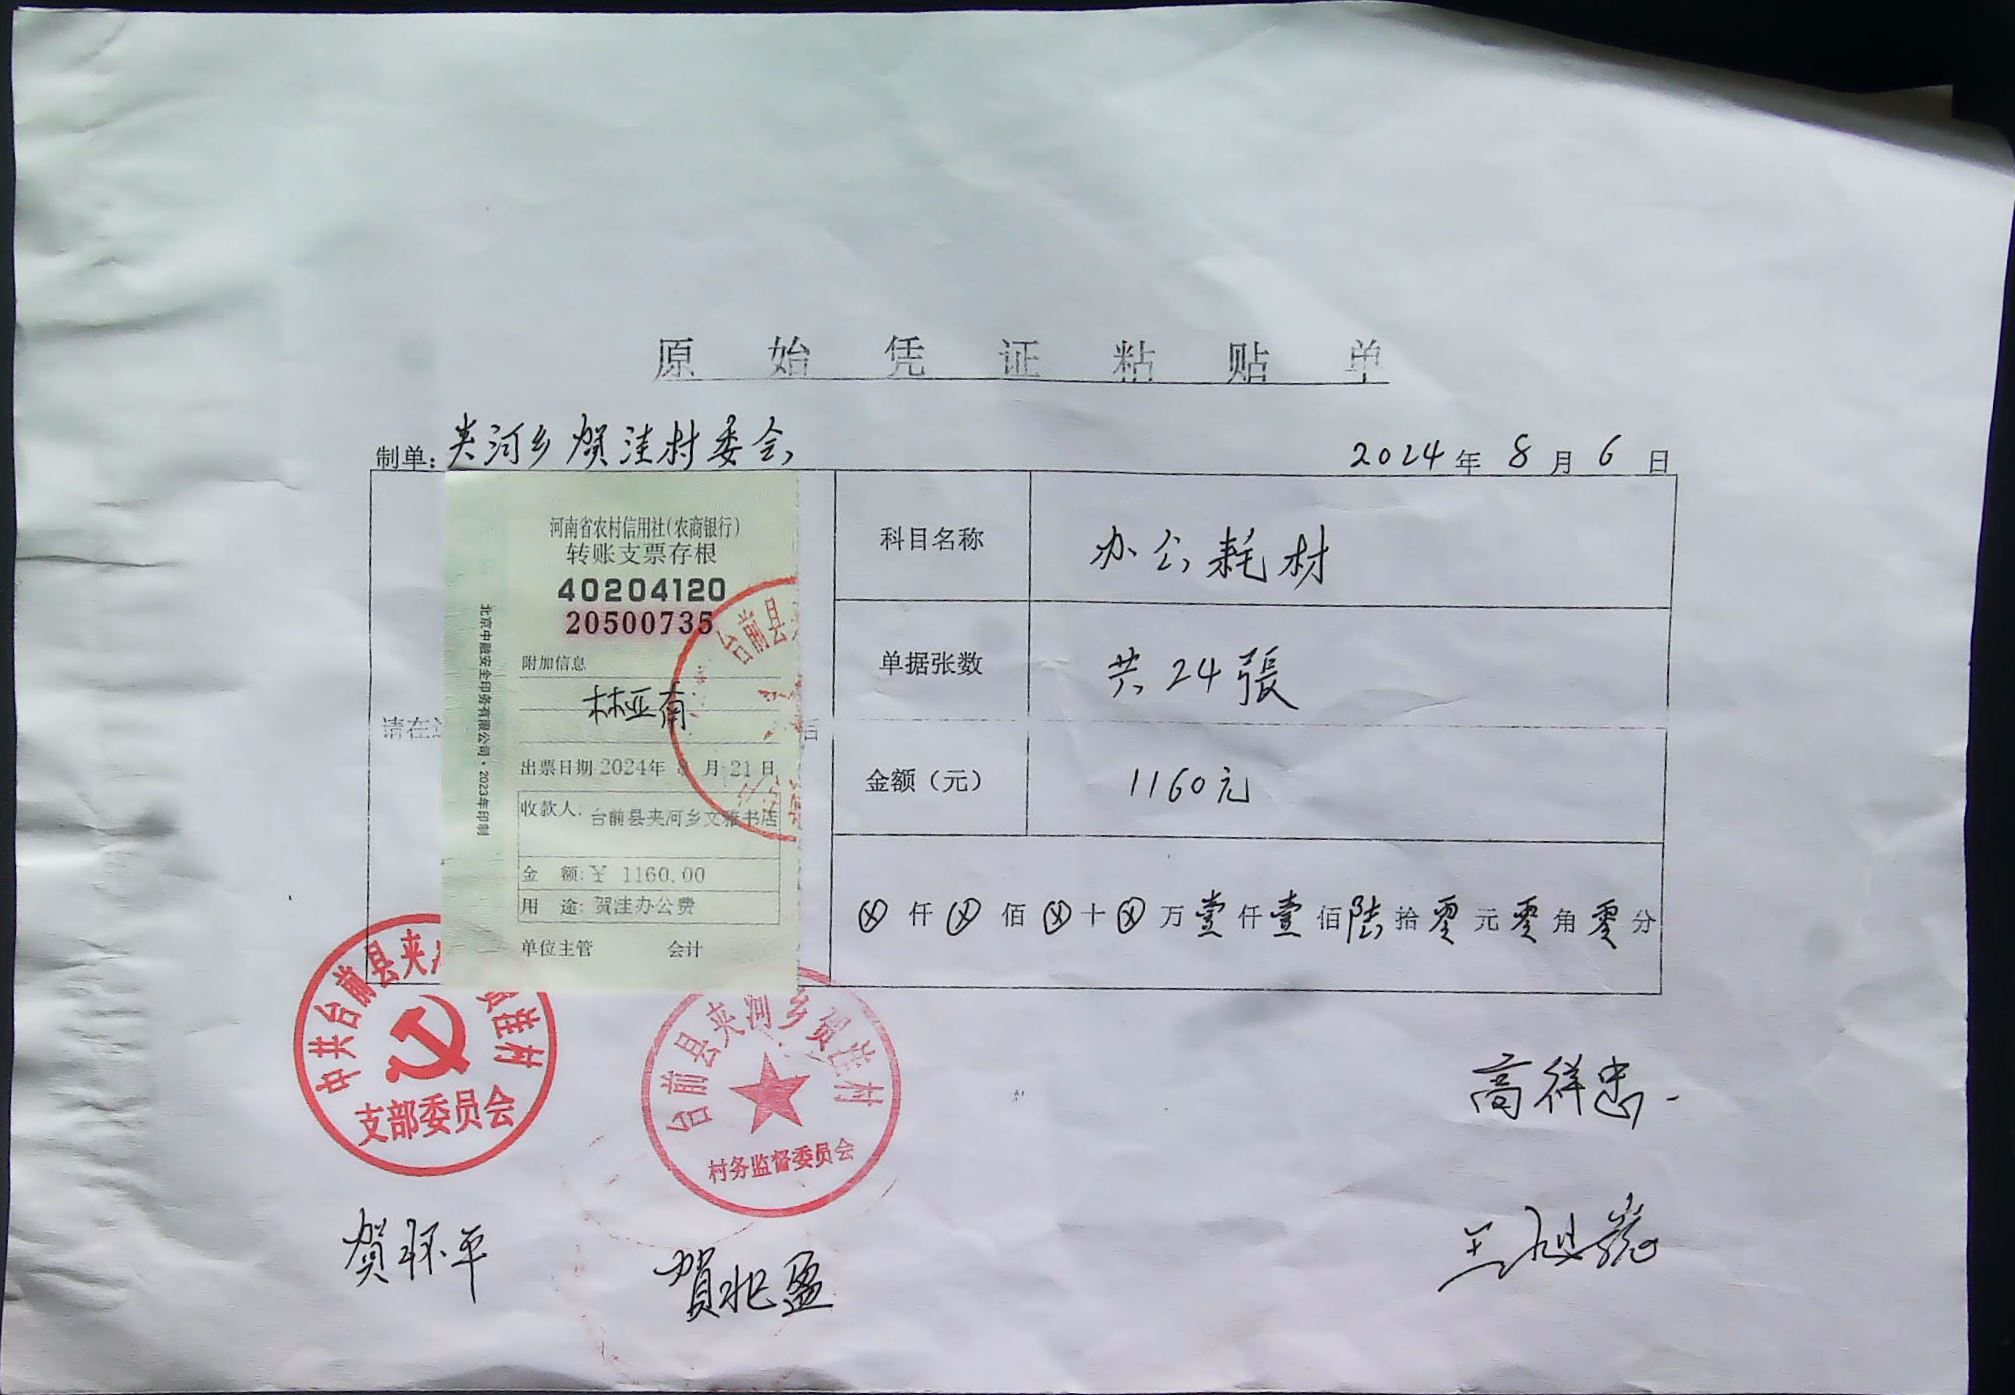 原始凭证粘贴单
制单：夹河乡贺洼村委会
2024年8月6日
请在
后
河南省农村信用社(农商银行)
转账支票存根
40204120
20500735
北京中融安全印务有限公司·2023年印制
附加信息
林亚南
出票日期 2024年 8 月 21 日
收款人: 台前县夹河乡文雅书店
金 额: ¥ 1160.00
用 途: 贺洼办公费
单位主管 会计
台前县
科目名称 办公耗材
单据张数 共24張
金额（元） 1160元
ⓧ仟ⓧ佰ⓧ十ⓧ万壹仟壹佰陆拾零元零角零分
中共台前县夹 贺洼村
支部委员会
台前县夹河乡贺洼村
村务监督委员会
高祥忠
贺怀平
賀兆盈